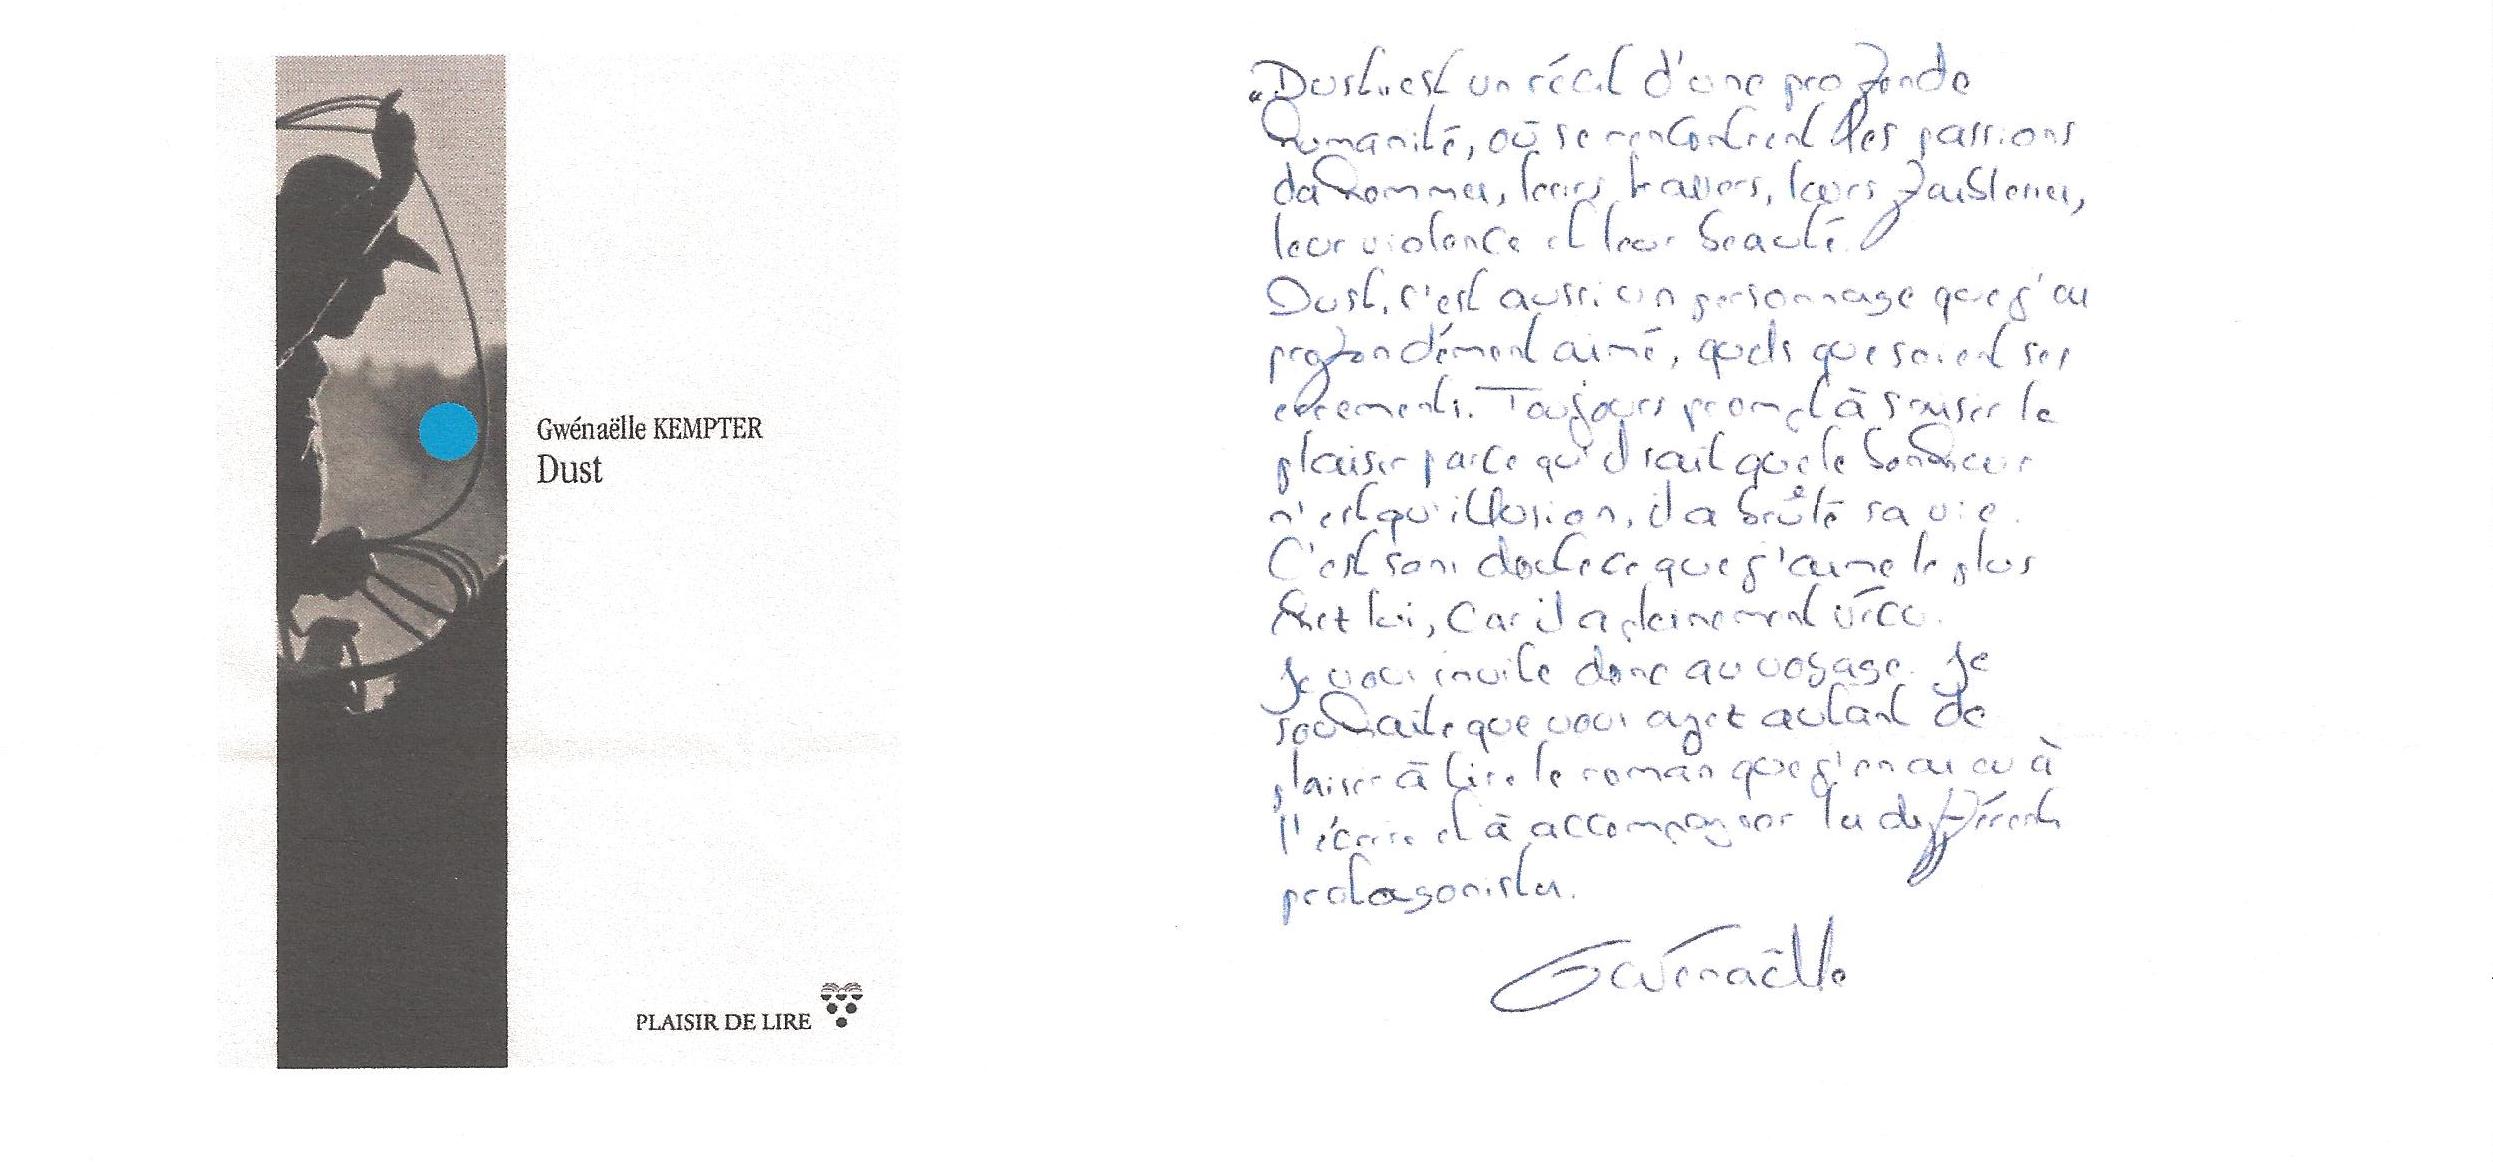 Gwénaëlle KEMPTER
Dust
PLAISIR DE LIRE
"Dust" est un récit d'une profonde
humanité, où se rencontrent les passions
des hommes, leurs travers, leurs faiblesses,
leur violence et leur beauté.
Dust, c'est aussi un personnage que j'ai
profondément aimé, quels que soient ses
errements. Toujours prompt à saisir le
plaisir parce qu'il sait que le bonheur
n'est qu'illusion, il a brûlé sa vie.
C'est sans doute ce que j'aime le plus
chez lui, car il a pleinement vécu.
Je vous invite donc au voyage. Je
souhaite que vous ayez autant de
plaisir à lire le roman que j'en ai eu à
l'écrire et à accompagner les différents
protagonistes.
Gwénaëlle